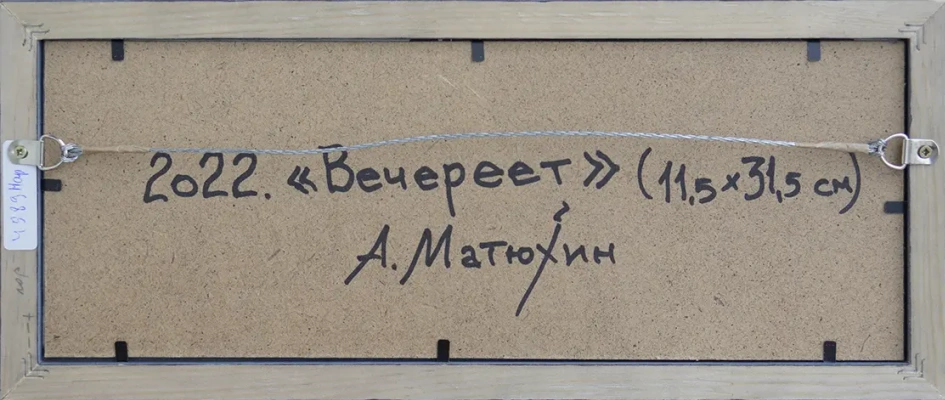 2022. «Вечереет» (11,5×31,5 см)
А. Матюхин